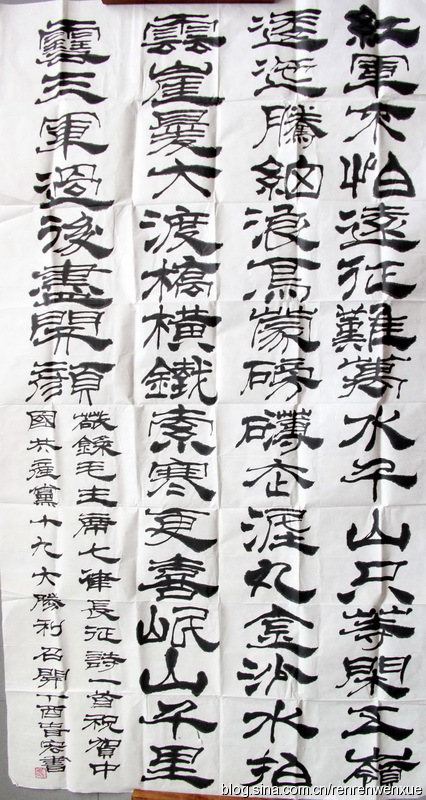 紅軍不怕遠征難萬水千山只等閑五嶺
逶迤騰細浪烏蒙磅礴走泥丸金沙水拍
雲崖暖大渡橋橫鐵索寒更喜岷山千里
雪三軍過後盡開顏
敬錄毛主席七律長征詩一首祝賀中
國共產黨十九大勝利召開丁酉宏書
blog.sina.com.cn/renrenwenxue